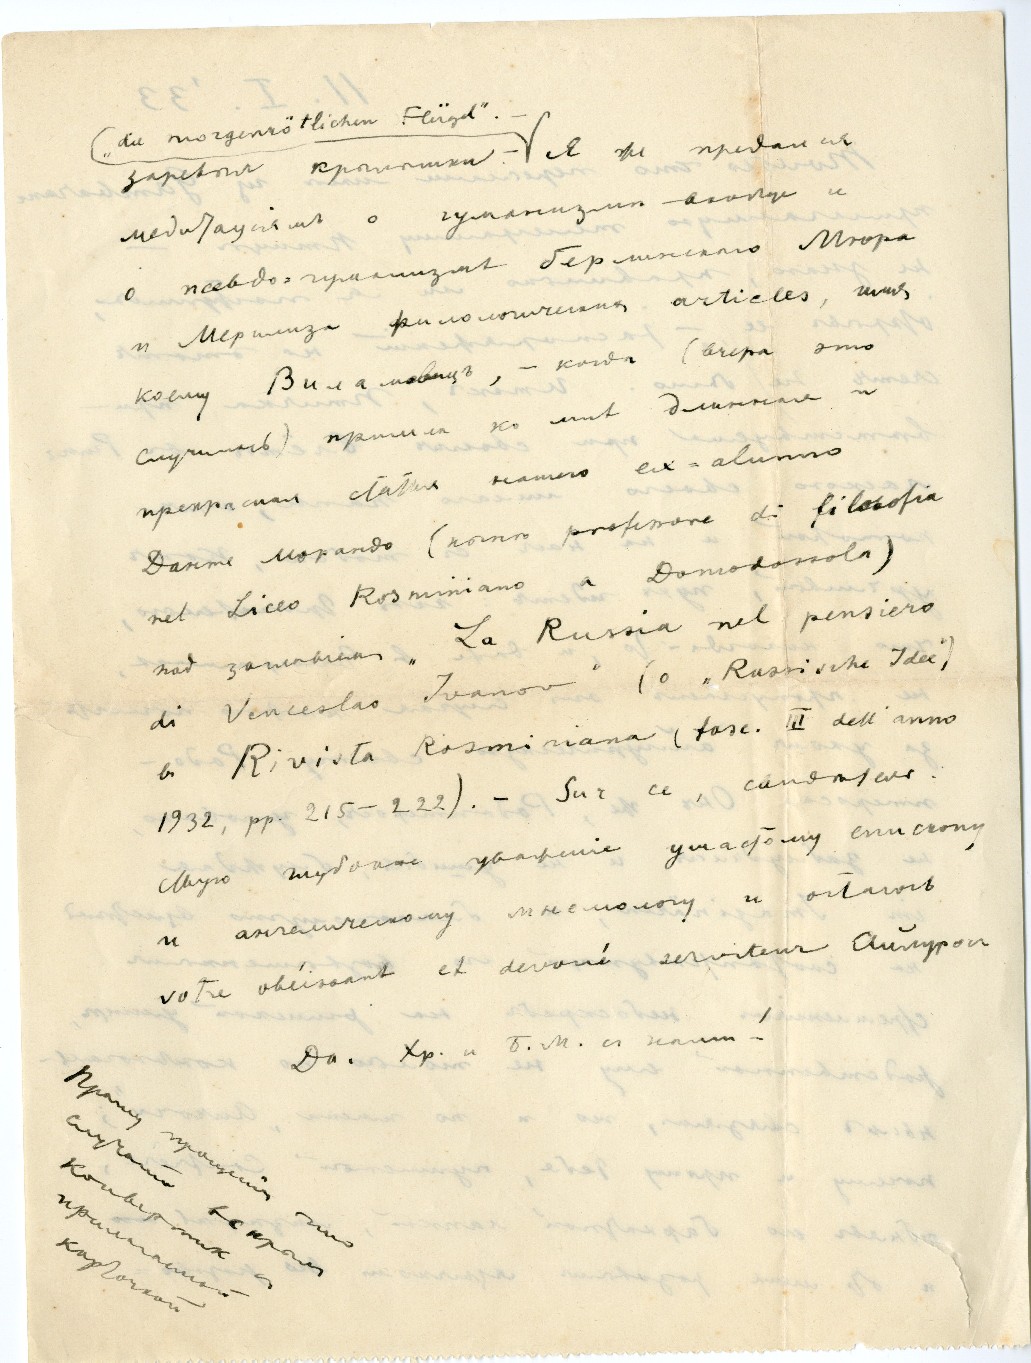 („die morgenrötlichen Flügel“. —
заревыя крылышки. — Я же предался
медитацiямъ о гуманизмѣ вообще и
о псевдо-гуманизмѣ берлинскаго Мюра
и Мерилиза филологическихъ articles, имя
коему Виламовицъ, — когда (вчера это
случилось) пришла ко мнѣ длинная и
прекрасная статья нашего ex-alunno
Данте Морандо (нынѣ professore di filosofia
nel Liceo Rosminiano a Domodossola)
под заглавiемъ „La Russia nel pensiero
di Venceslao Ivanov“ (о „Russische Idee“)
въ Rivista Rosminiana (fasc. III dell'anno
1932, pp. 215–222). — Sur ce,
глубокое уваженiе ушастому епископу
и ангелическому мнемологу и остаюсь
votre obéissant et dévoué serviteur Айлуросъ
Да. Хр. и Б. М. съ нами!
Прошу прощенiя что
случайно вскрылъ
конвертикъ съ
прилагаемой
карточкой